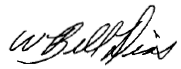 W Bell Dias